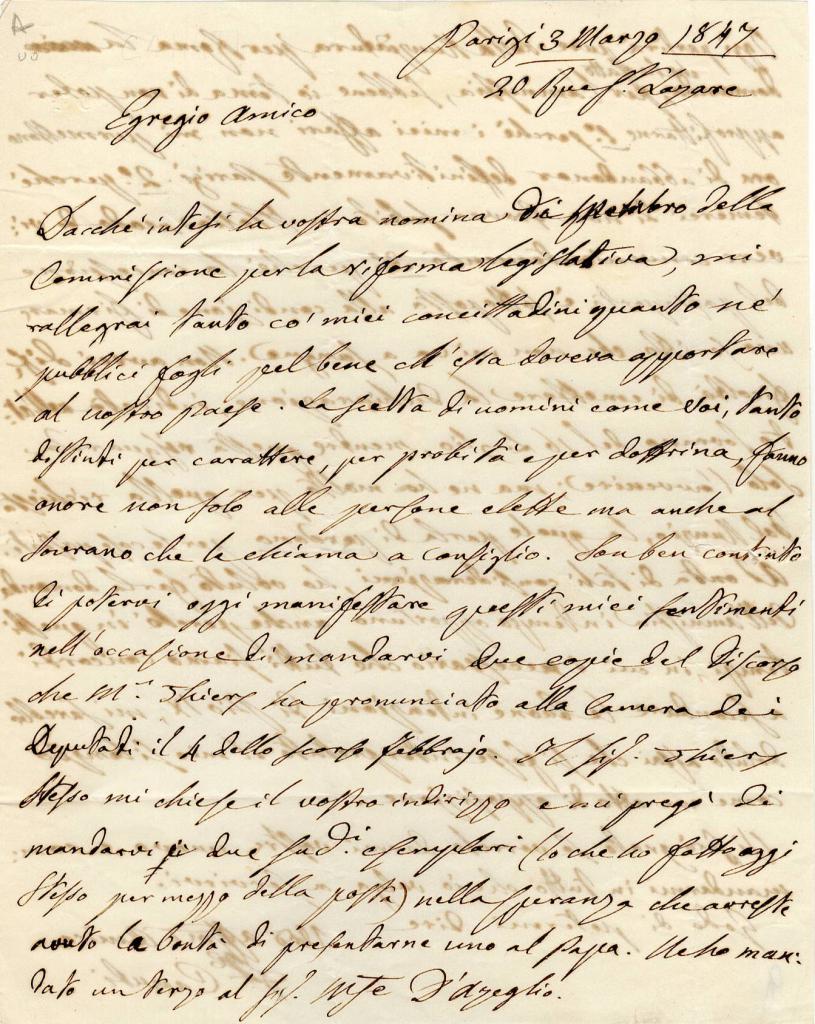 Parigi 3 Marzo 1847
20 Rue St. Lazare
Egregio Amico
Dacchè intesi la vostra nomina di membro della
Commissione per la riforma legislativa, mi
rallegrai tanto co' miei concittadini quanto ne'
pubblici fogli pel bene ch'essa doveva apportare
al nostro paese. La scelta di uomini come voi, tanto
distinti per carattere, per probità e per dottrina, fanno
onore non solo alle persone elette ma anche al
Sovrano che le chiama a consiglio. Son ben contento
di potervi oggi manifestare questi miei sentimenti
nell'occasione di mandarvi due copie del Discorso
che Mr. Thiers ha pronunciato alla Camera dei
Deputati il 4 dello scorso febbrajo. Il Sig. Thiers
stesso mi chiese il vostro indirizzo e mi pregò di
mandarvi i due sud.i esemplari (lo che ho fatto oggi
stesso per mezzo della posta) nella speranza che avreste
avuto la bontà di presentarne uno al Papa. Ne ho man=
dato un terzo al Sig. Mse D'Azeglio.